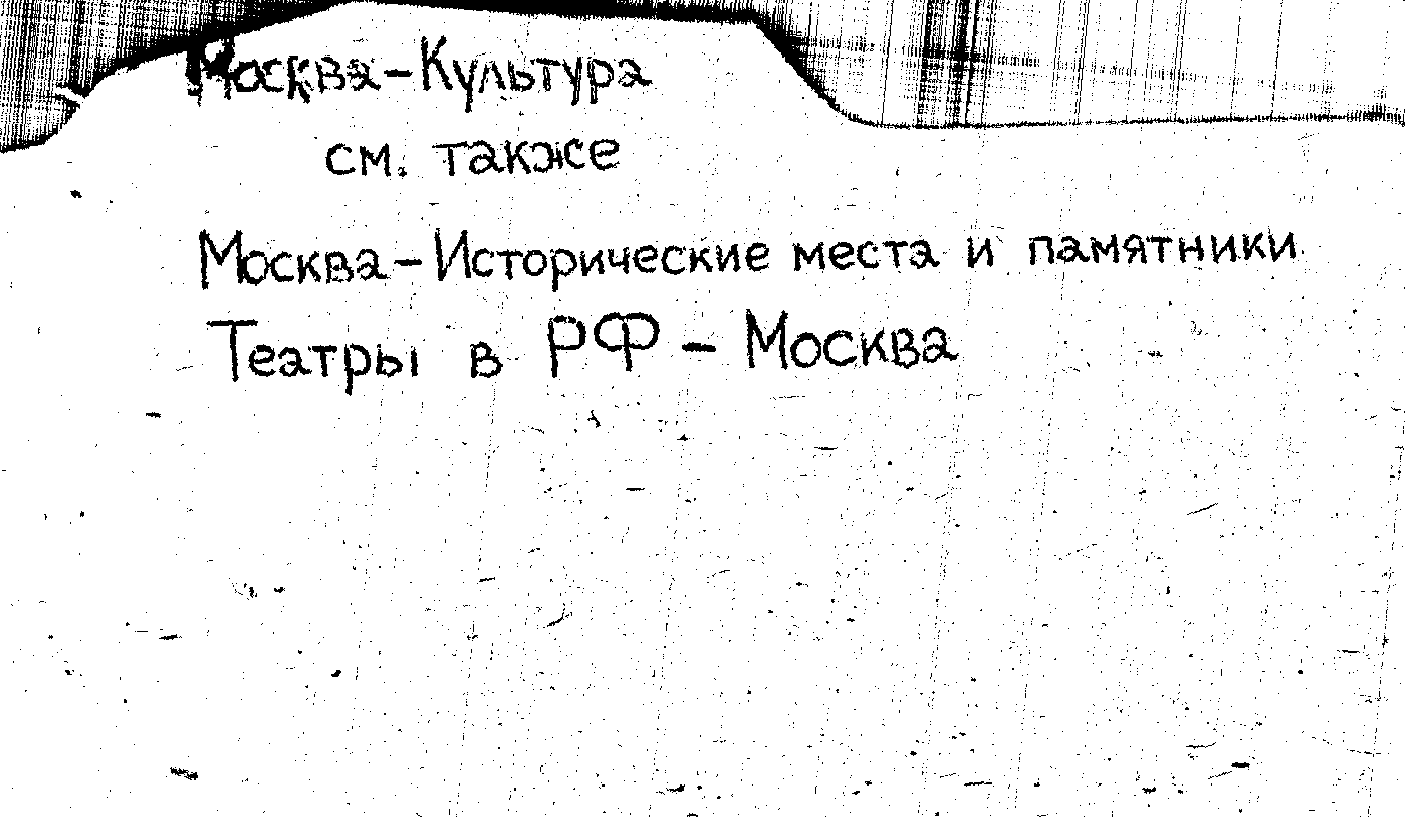 Москва-Культура
см. также
Москва-Исторические места и памятники
Театры в РФ - Москва